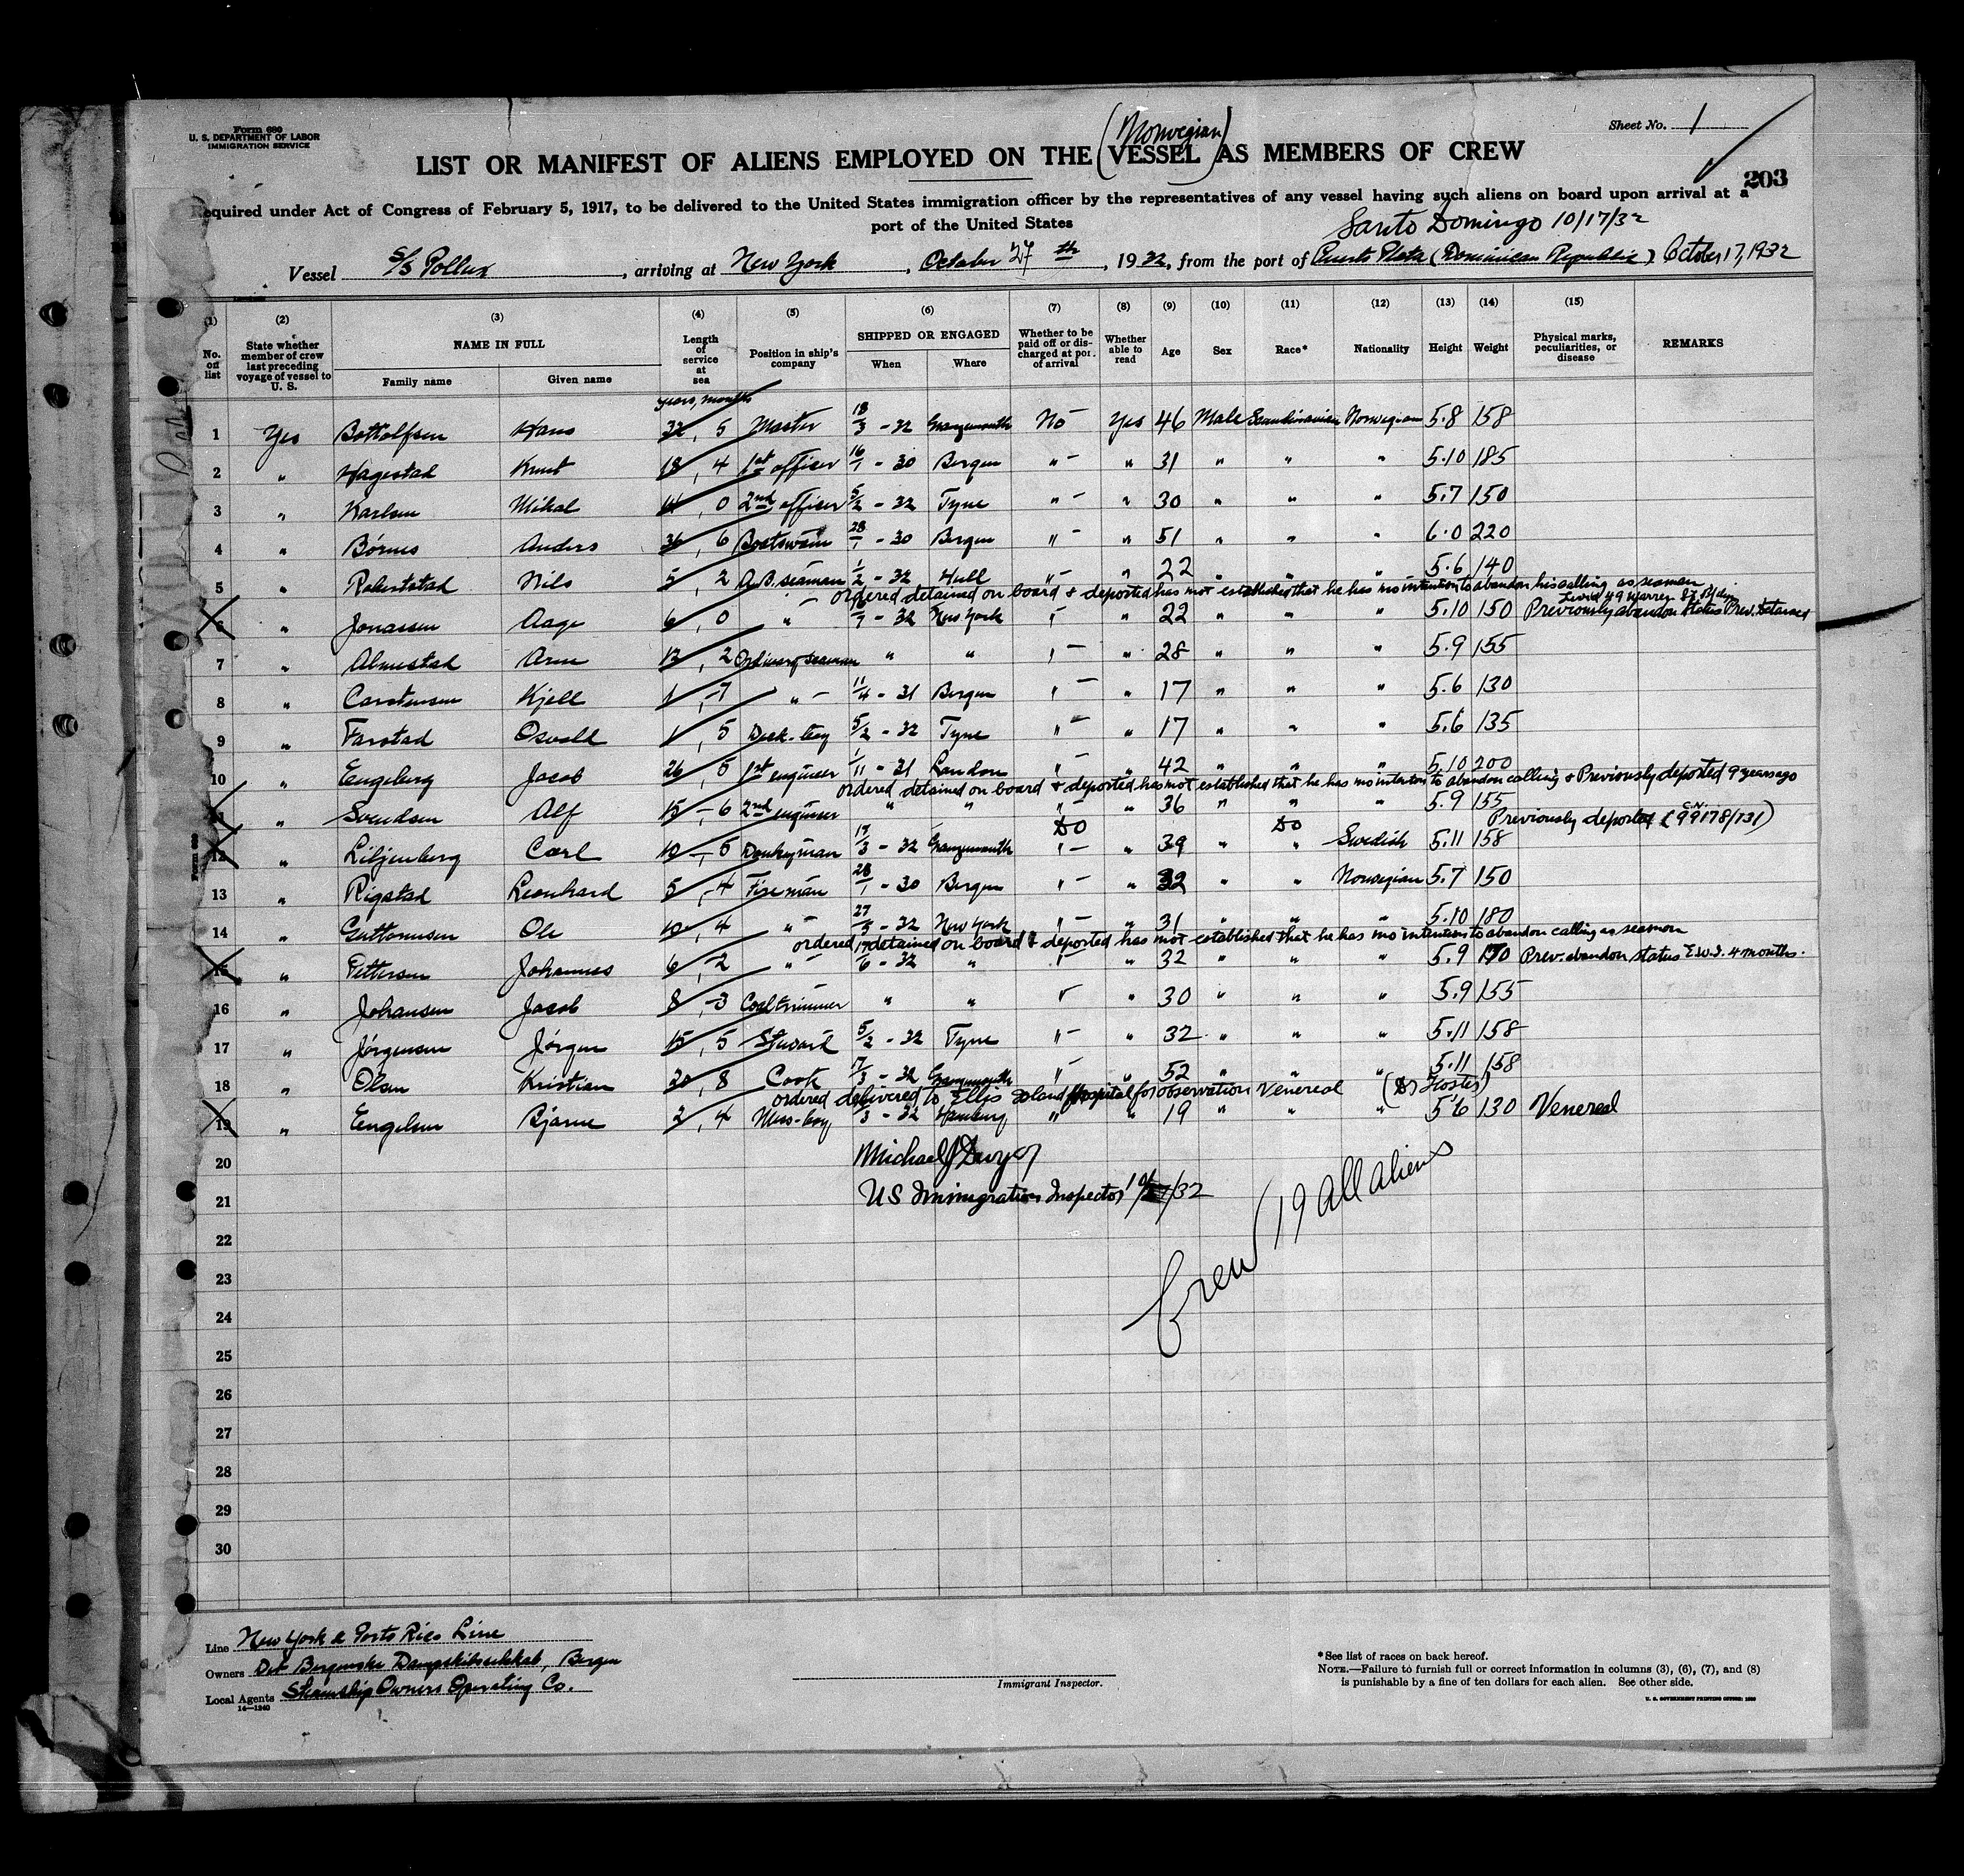 Form 680
U. S. DEPARTMENT OF LABOR
IMMIGRATION SERVICE
Sheet No. 1
(Norwegian)
LIST OR MANIFEST OF ALIENS EMPLOYED ON THE VESSEL AS MEMBERS OF CREW
203
Required under Act of Congress of February 5, 1917, to be delivered to the United States immigration officer by the representatives of any vessel having such aliens on board upon arrival at a
port of the United States
Santo Domingo 10/17/32
Vessel S/S Pollux, arriving at New York, October 27 th, 1932, from the port of Puerto Plata (Dominican Republic) October 17, 1932
(1) (2) (3) (4) (5) (6) (7) (8) (9) (10) (11) (12) (13) (14) (15)
No. on list
State whether member of crew last preceding voyage of vessel to U. S.
NAME IN FULL
Family name Given name
Length of service at sea
Position in ship's company
SHIPPED OR ENGAGED
When Where
Whether to be paid off or discharged at port of arrival
Whether able to read
Age Sex Race* Nationality Height Weight
Physical marks, peculiarities, or disease
REMARKS
years, months
1 Yes Bottolfsen Hans 32, 5 Master 18/3 - 32 Grangemouth No - Yes 46 Male Scandinavian Norwegian 5.8 158
2 " Hagestad Knut 18, 4 1st officer 16/1 - 30 Bergen " - " 31 " " " 5.10 185
3 " Karlsen Mikal 14, 0 2nd officer 5/2 - 32 Tyne " - " 30 " " " 5.7 150
4 " Börnes Anders 36, 6 Boatswain 28/1 - 30 Bergen " - " 51 " " " 6.0 220
5 " Robertstad Nils 5, 2 A.B. seaman 1/2 - 32 Hull " - " 22 " " " 5.6 140
ordered detained on board & deported has not established that he has no intention to abandon his calling as seaman
Lived 49 Warren St. Bklyn
6 " Jonassen Aage 6, 0 " - 32 New York " - " 22 " " " 5.10 150 Previously abandon status Prev. detained
7 " Almestad Arne 12, 2 Ordinary seaman " " " - " 28 " " " 5.9 155
8 " Carstensen Kjell 1, -7 " - 11/4 - 31 Bergen " - " 17 " " " 5.6 130
9 " Farstad Osvald 1, 5 Deck-boy 5/2 - 32 Tyne " - " 17 " " " 5.6 135
10 " Engeberg Jacob 26, 5 1st engineer 1/11 - 31 London " - " 42 " " " 5.10 200
ordered detained on board & deported has not established that he has no intention to abandon calling & Previously deported 9 years ago
11 " Svendsen Alf 15 - 6 2nd engineer " " " - " 36 " " " 5.9 155
DO DO Previously deported C.N. (99178/131)
12 " Liljenberg Carl 10 -, 5 Donkeyman 17/3 - 32 Grangemouth " - " 39 " " Swedish 5.11 158
13 " Rigstad Leonhard 5, -4 Fireman 28/1 - 30 Bergen " - " 32 " " Norwegian 5.7 150
14 " Guttormsen Ole 10, 4 " - 32 New York " - " 31 " " " 5.10 180
ordered detained on board & deported has not established that he has no intention to abandon calling as seaman
15 " Pettersen Johannes 6, -2 " - 17/6 - 32 " " " 32 " " " 5.9 170 Prev. abandon status E.W.I. 4 months.
16 " Johansen Jacob 8, -3 Coaltrimmer " " " " 30 " " " 5.9 155
17 " Jörgensen Jörgen 15, 5 Steward 5/2 - 32 Tyne " - " 32 " " " 5.11 158
18 " Olsen Kristian 30, 8 Cook 17/3 - 32 Grangemouth " - " 52 " " " 5.11 158
ordered delivered to Ellis Island Hospital for observation Venereal (Dr Foster)
19 " Engelsen Bjarne 2, 4 Mess-boy /3 - 32 Hamburg " " 19 " " " 5.6 130 Venereal
20 Michael J Dwyer
21 US Immigration Inspector /32
Crew 19 all aliens
22
23
24
25
26
27
28
29
30
Line New York & Porto Rico Line
Owners Det Bergenske Dampskibsselskab, Bergen
Local Agents Steamship Owners Operating Co.
14—1240
Immigrant Inspector.
*See list of races on back hereof.
NOTE.—Failure to furnish full or correct information in columns (3), (6), (7), and (8)
is punishable by a fine of ten dollars for each alien. See other side.
U. S. GOVERNMENT PRINTING OFFICE: 1930